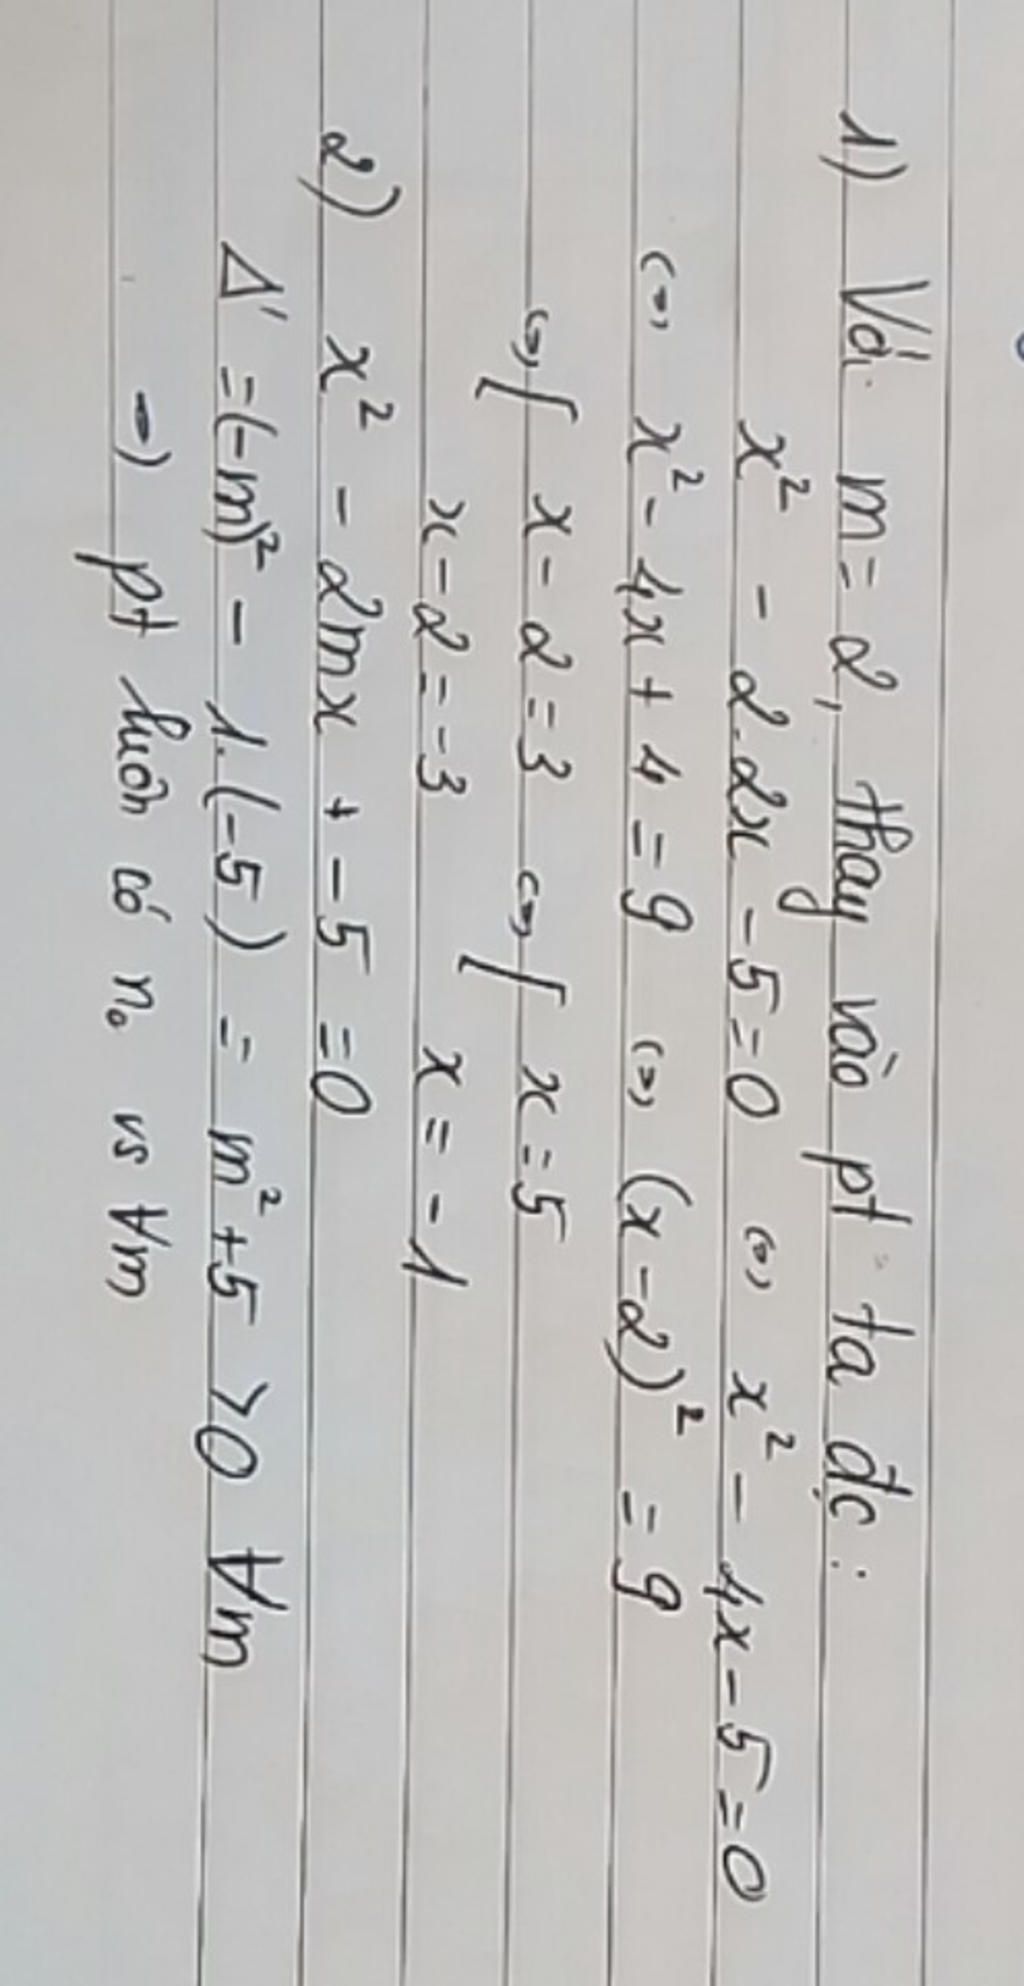 1) Với m = 2, thay vào pt ta đc :
x² - 2.2x - 5 = 0 <=> x² - 4x - 5 = 0
<=> x² - 4x + 4 = 9 <=> (x - 2)² = 9
<=> [ x - 2 = 3 <=> [ x = 5
x - 2 = -3 x = -1
2) x² - 2mx + -5 = 0
Δ' = (-m)² - 1.(-5) = m² + 5 > 0 ∀m
=> pt luôn có n₀ vs ∀m